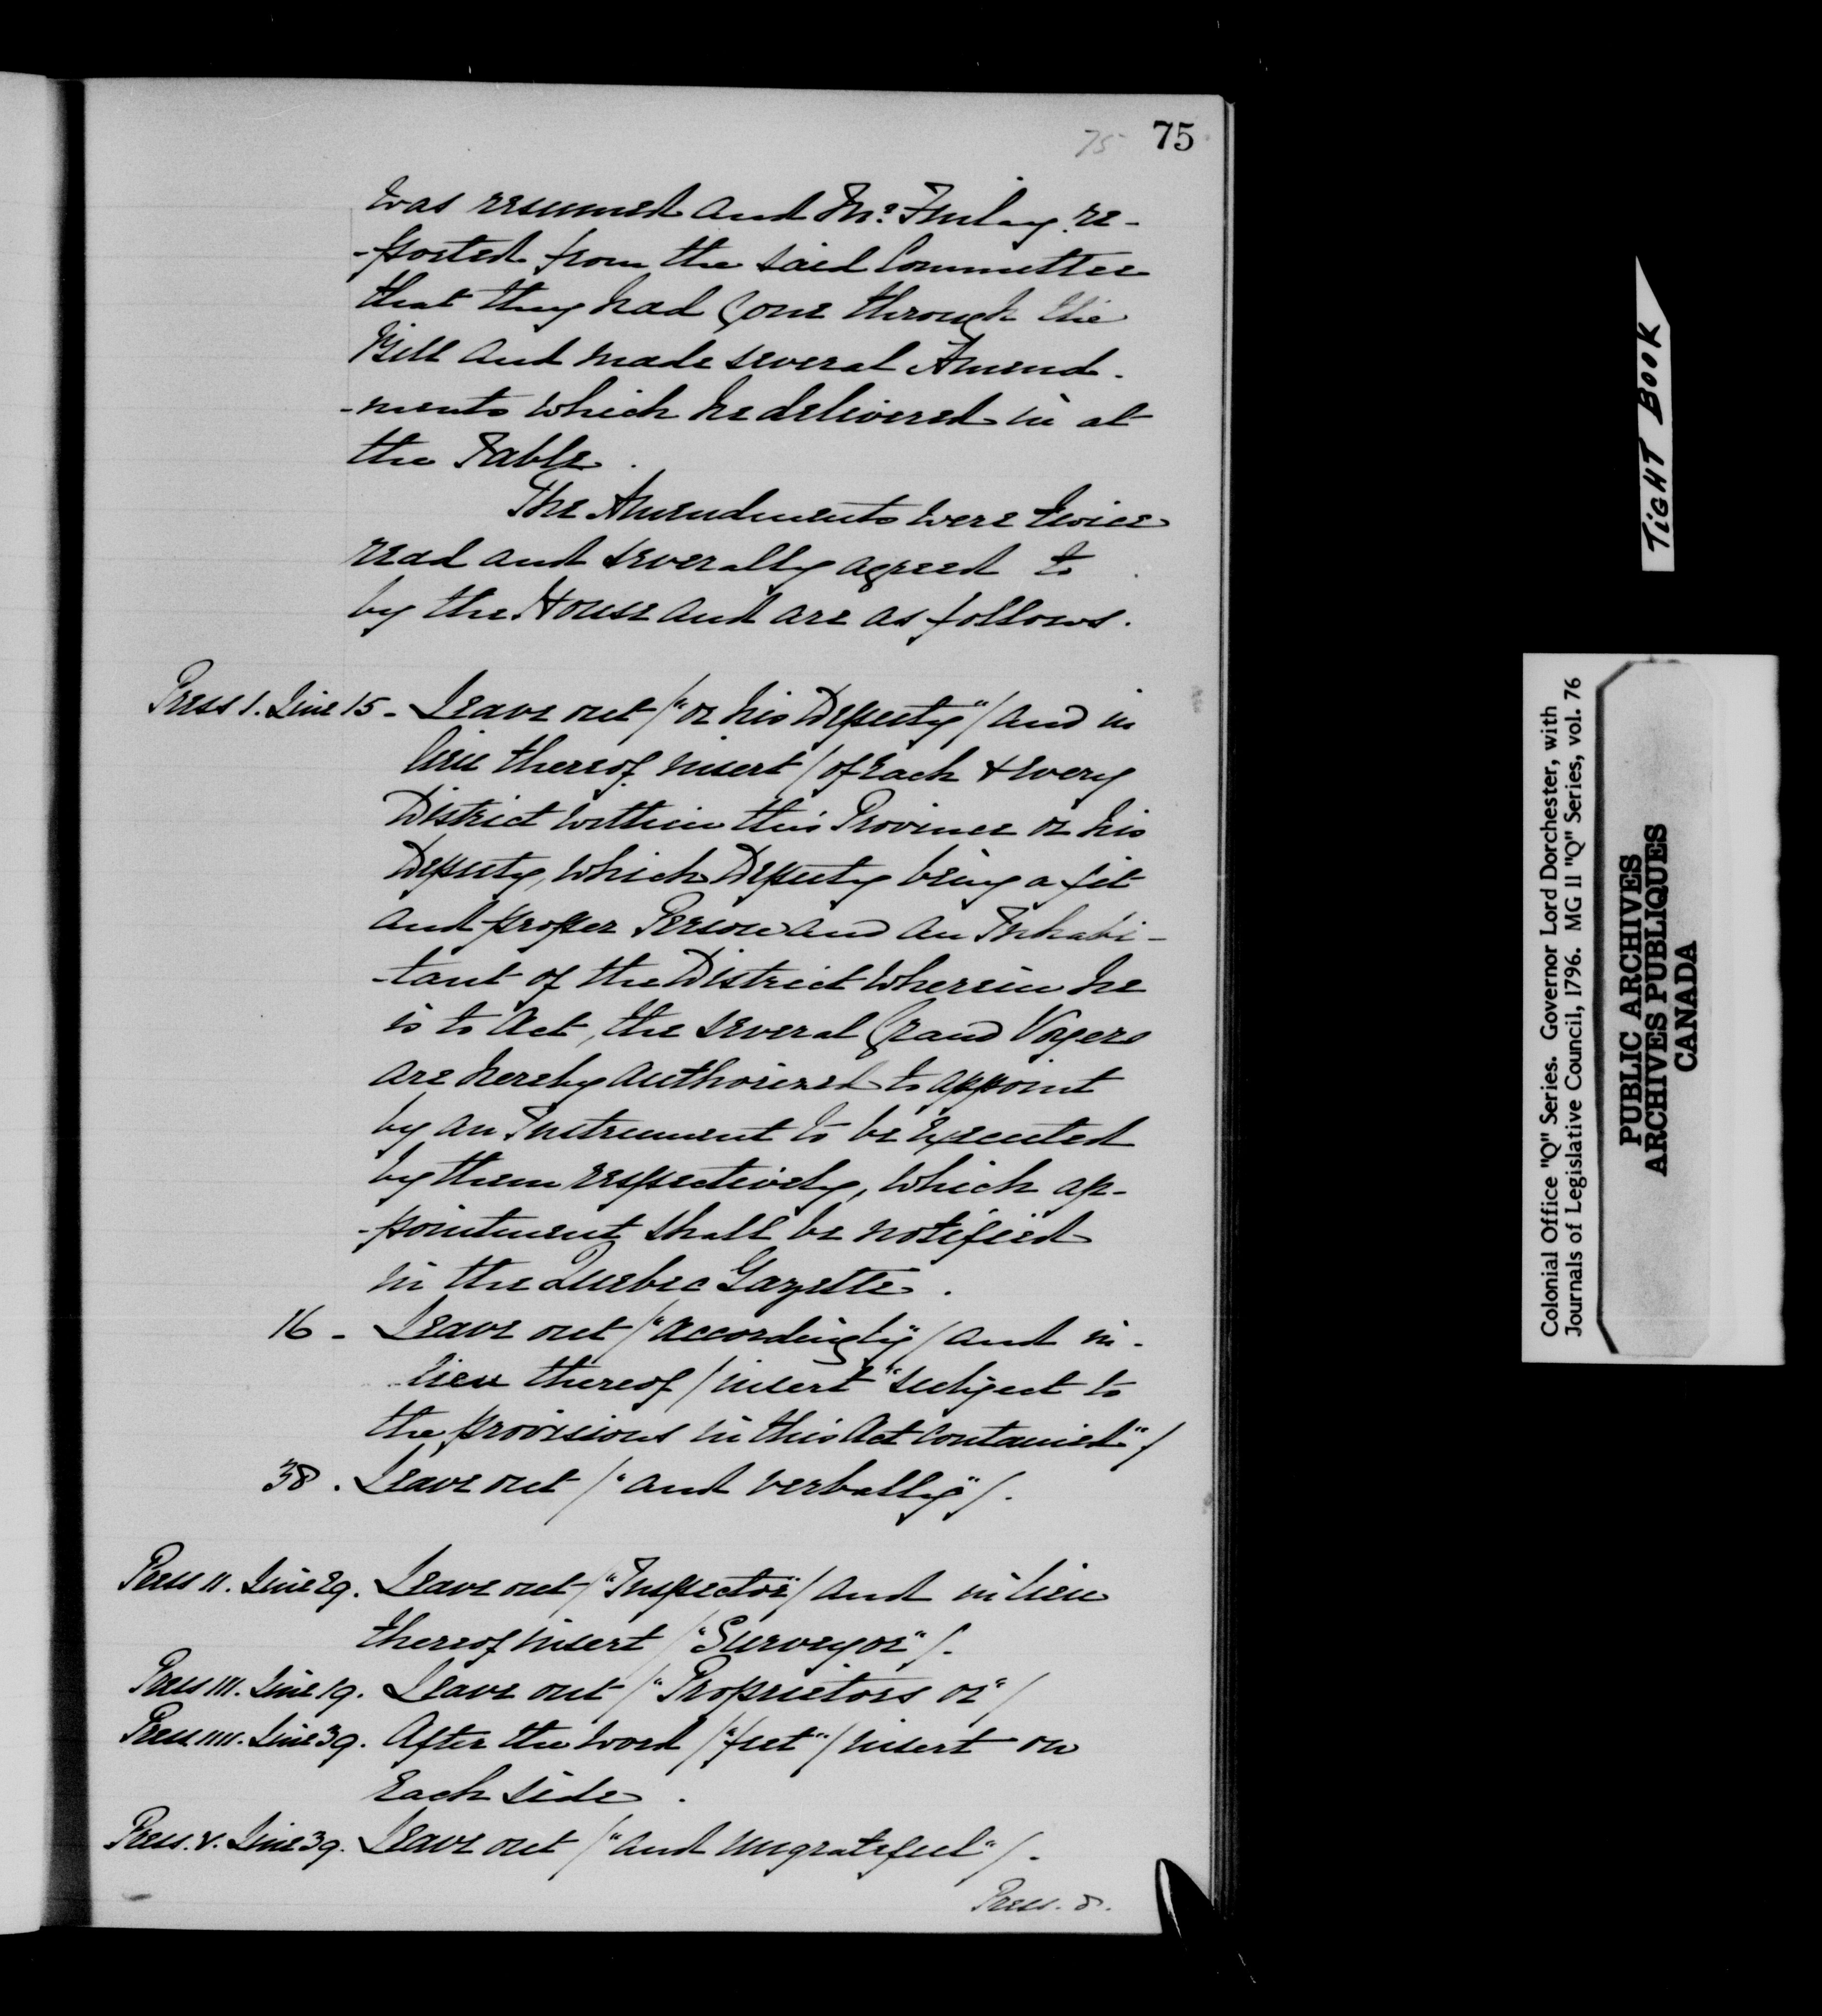 75 75
was resumed and Mr. Finlay re-
-ported from the said Committee
that they had Gone through the
Bill and made several Amend-
-ments which he delivered in at
the Table.
The Amendments were twice
read and severally agreed to
by the House and are as follows.
Press 1. Line 15 - Leave out /"or his Deputy"/ and in
lieu thereof insert / of Each & Every
District within this Province or his
Deputy, which Deputy being a fit
and proper Person and an Inhabi-
-tant of the District wherein he
is to Act, the several Grand Voyers
are hereby authorized to appoint
by an Instrument to be Executed
by them respectively, which ap-
-pointment shall be notified
in the Quebec Gazette.
16 - Leave out /"accordingly"/ and in-
lieu thereof / insert "subject to
the provisions in this Act contained"/
38. Leave out /"and verbally"/.
Press 11. Line 29. Leave out /"Inspector"/ and in lieu
thereof insert /"Surveyor"/.
Press 111. Line 19. Leave out /"Proprietors or"/
Press 1111. Line 39. After the word /"feet"/ insert on
Each side.
Press. V. Line 39. Leave out /"and ungrateful"/.
Press. 8.
TIGHT BOOK
Colonial Office "Q" Series. Governor Lord Dorchester, with
Journals of Legislative Council, 1796. MG 11 "Q" Series, vol. 76
PUBLIC ARCHIVES
ARCHIVES PUBLIQUES
CANADA